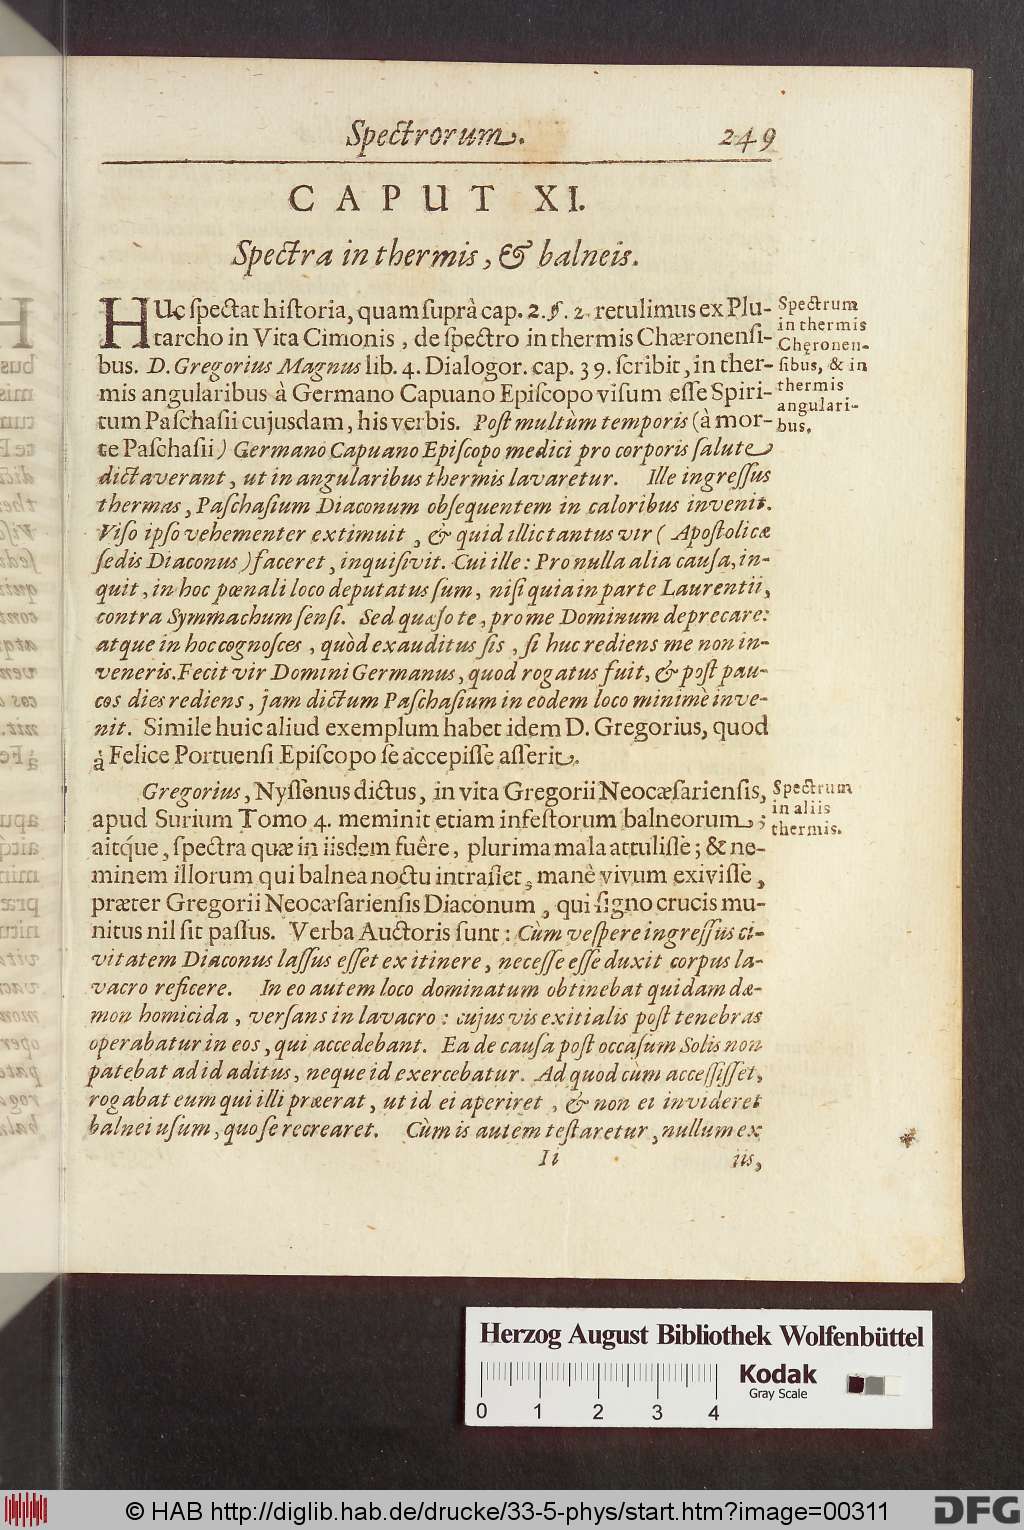 Spectrorum. 249
CAPUT XI.
Spectra in thermis, & balneis.
HUc ſpectat hiſtoria, quam ſuprà cap. 2. §. 2. retulimus ex Plu-
tarcho in Vita Cimonis, de ſpectro in thermis Chæronenſi-
bus. D. Gregorius Magnus lib. 4. Dialogor. cap. 39. ſcribit, in ther-
mis angularibus à Germano Capuano Epiſcopo viſum eſſe Spiri-
tum Paſchaſii cujusdam, his verbis. Poſt multùm temporis (à mor-
te Paſchaſii) Germano Capuano Epiſcopo medici pro corporis ſalute
dictaverant, ut in angularibus thermis lavaretur. Ille ingreſſus
thermas, Paſchaſium Diaconum obſequentem in caloribus invenit.
Viſo ipſo vehementer extimuit, & quid illic tantus vir (Apoſtolicæ
ſedis Diaconus) faceret, inquiſivit. Cui ille: Pro nulla alia cauſa, in-
quit, in hoc pœnali loco deputatus ſum, niſi quia in parte Laurentii,
contra Symmachum ſenſi. Sed quæſo te, pro me Dominum deprecare:
atque in hoc cognoſces, quòd exauditus ſis, ſi huc rediens me non in-
veneris. Fecit vir Domini Germanus, quod rogatus fuit, & poſt pau-
cos dies rediens, jam dictum Paſchaſium in eodem loco minimè inve-
nit. Simile huic aliud exemplum habet idem D. Gregorius, quod
à Felice Portuenſi Epiſcopo ſe accepiſſe aſſerit.
Spectrum
in thermis
Chęronen-
ſibus, & in
thermis
angulari-
bus.
Gregorius, Nyſſenus dictus, in vita Gregorii Neocæſarienſis,
apud Surium Tomo 4. meminit etiam infeſtorum balneorum;
aitq́ue, ſpectra quæ in iisdem fuêre, plurima mala attuliſſe; & ne-
minem illorum qui balnea noctu intraſſet, manè vivum exiviſſe,
præter Gregorii Neocæſarienſis Diaconum, qui ſigno crucis mu-
nitus nil ſit paſſus. Verba Auctoris ſunt: Cùm veſpere ingreſſus ci-
vitatem Diaconus laſſus eſſet ex itinere, neceſſe eſſe duxit corpus la-
vacro reficere. In eo autem loco dominatum obtinebat quidam dæ-
mon homicida, verſans in lavacro: cujus vis exitialis poſt tenebras
operabatur in eos, qui accedebant. Ea de cauſa poſt occaſum Solis non
patebat ad id aditus, neque id exercebatur. Ad quod cùm acceſſiſſet,
rogabat eum qui illi præerat, ut id ei aperiret, & non ei invideret
balnei uſum, quo ſe recrearet. Cùm is autem teſtaretur, nullum ex
Spectrum
in aliis
thermis.
Ii iis,
Herzog August Bibliothek Wolfenbüttel
Kodak
Gray Scale
0 1 2 3 4
© HAB http://diglib.hab.de/drucke/33-5-phys/start.htm?image=00311
DFG